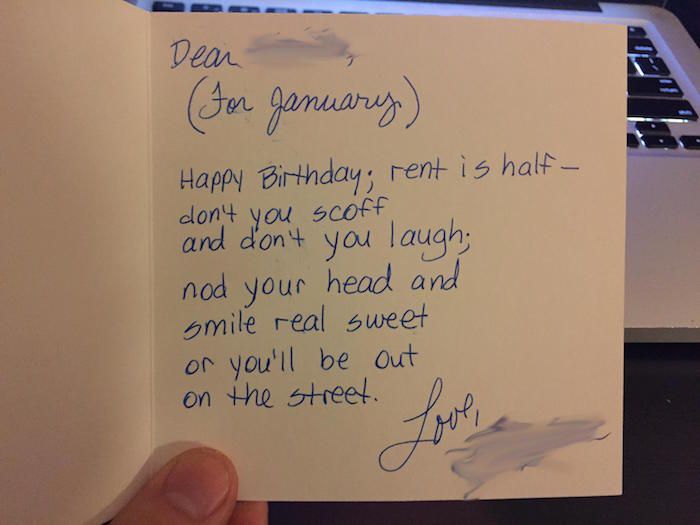 Dear ,
(For January)
Happy Birthday; rent is half-
don't you scoff
and don't you laugh;
nod your head and
smile real sweet
or you'll be out
on the street.
Love,